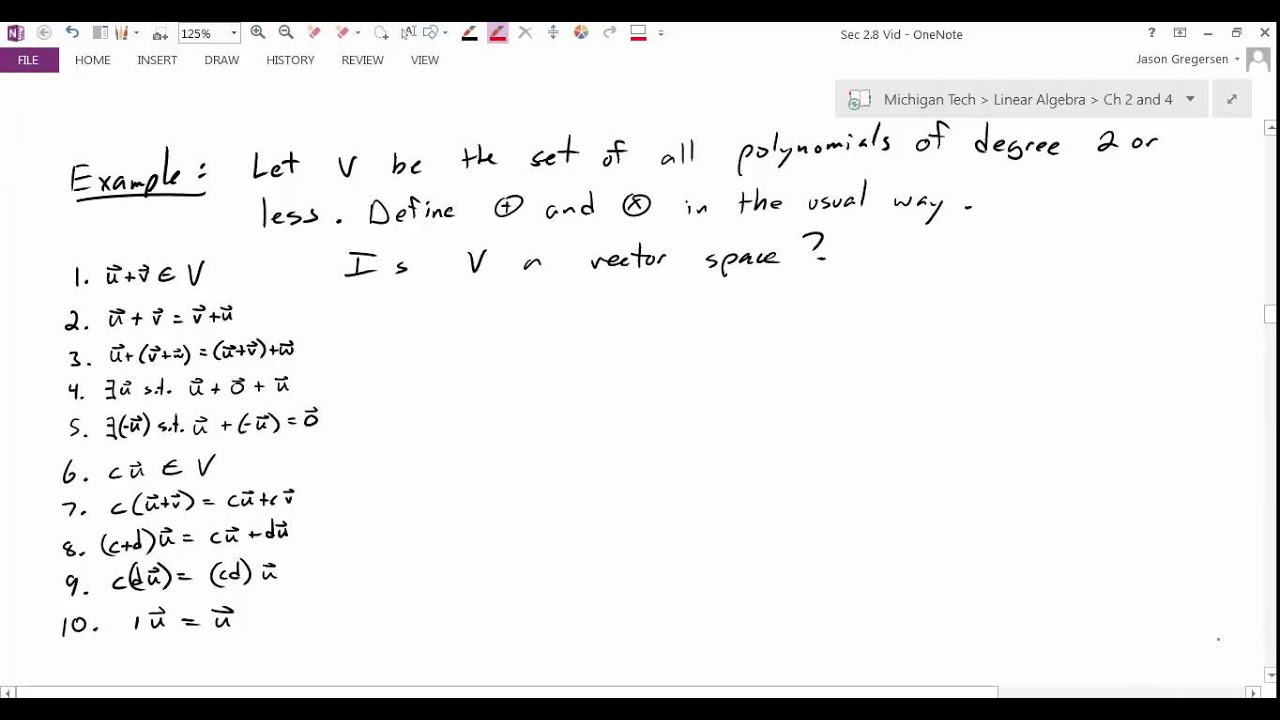 125%
Sec 2.8 Vid - OneNote
FILE HOME INSERT DRAW HISTORY REVIEW VIEW
Jason Gregersen
Michigan Tech > Linear Algebra > Ch 2 and 4
Example: Let V be the set of all polynomials of degree 2 or
less. Define ⊕ and ⊗ in the usual way.
Is V a vector space?
1. u⃗+v⃗ ∈ V
2. u⃗ + v⃗ = v⃗+u⃗
3. u⃗+(v⃗+w⃗) = (u⃗+v⃗)+w⃗
4. ∃u⃗ s.t. u⃗ + 0⃗ + u⃗
5. ∃(-u⃗) s.t. u⃗ + (-u⃗) = 0⃗
6. cu⃗ ∈ V
7. c(u⃗+v⃗) = cu⃗+cv⃗
8. (c+d)u⃗ = cu⃗ +du⃗
9. c(du⃗) = (cd)u⃗
10. 1u⃗ = u⃗